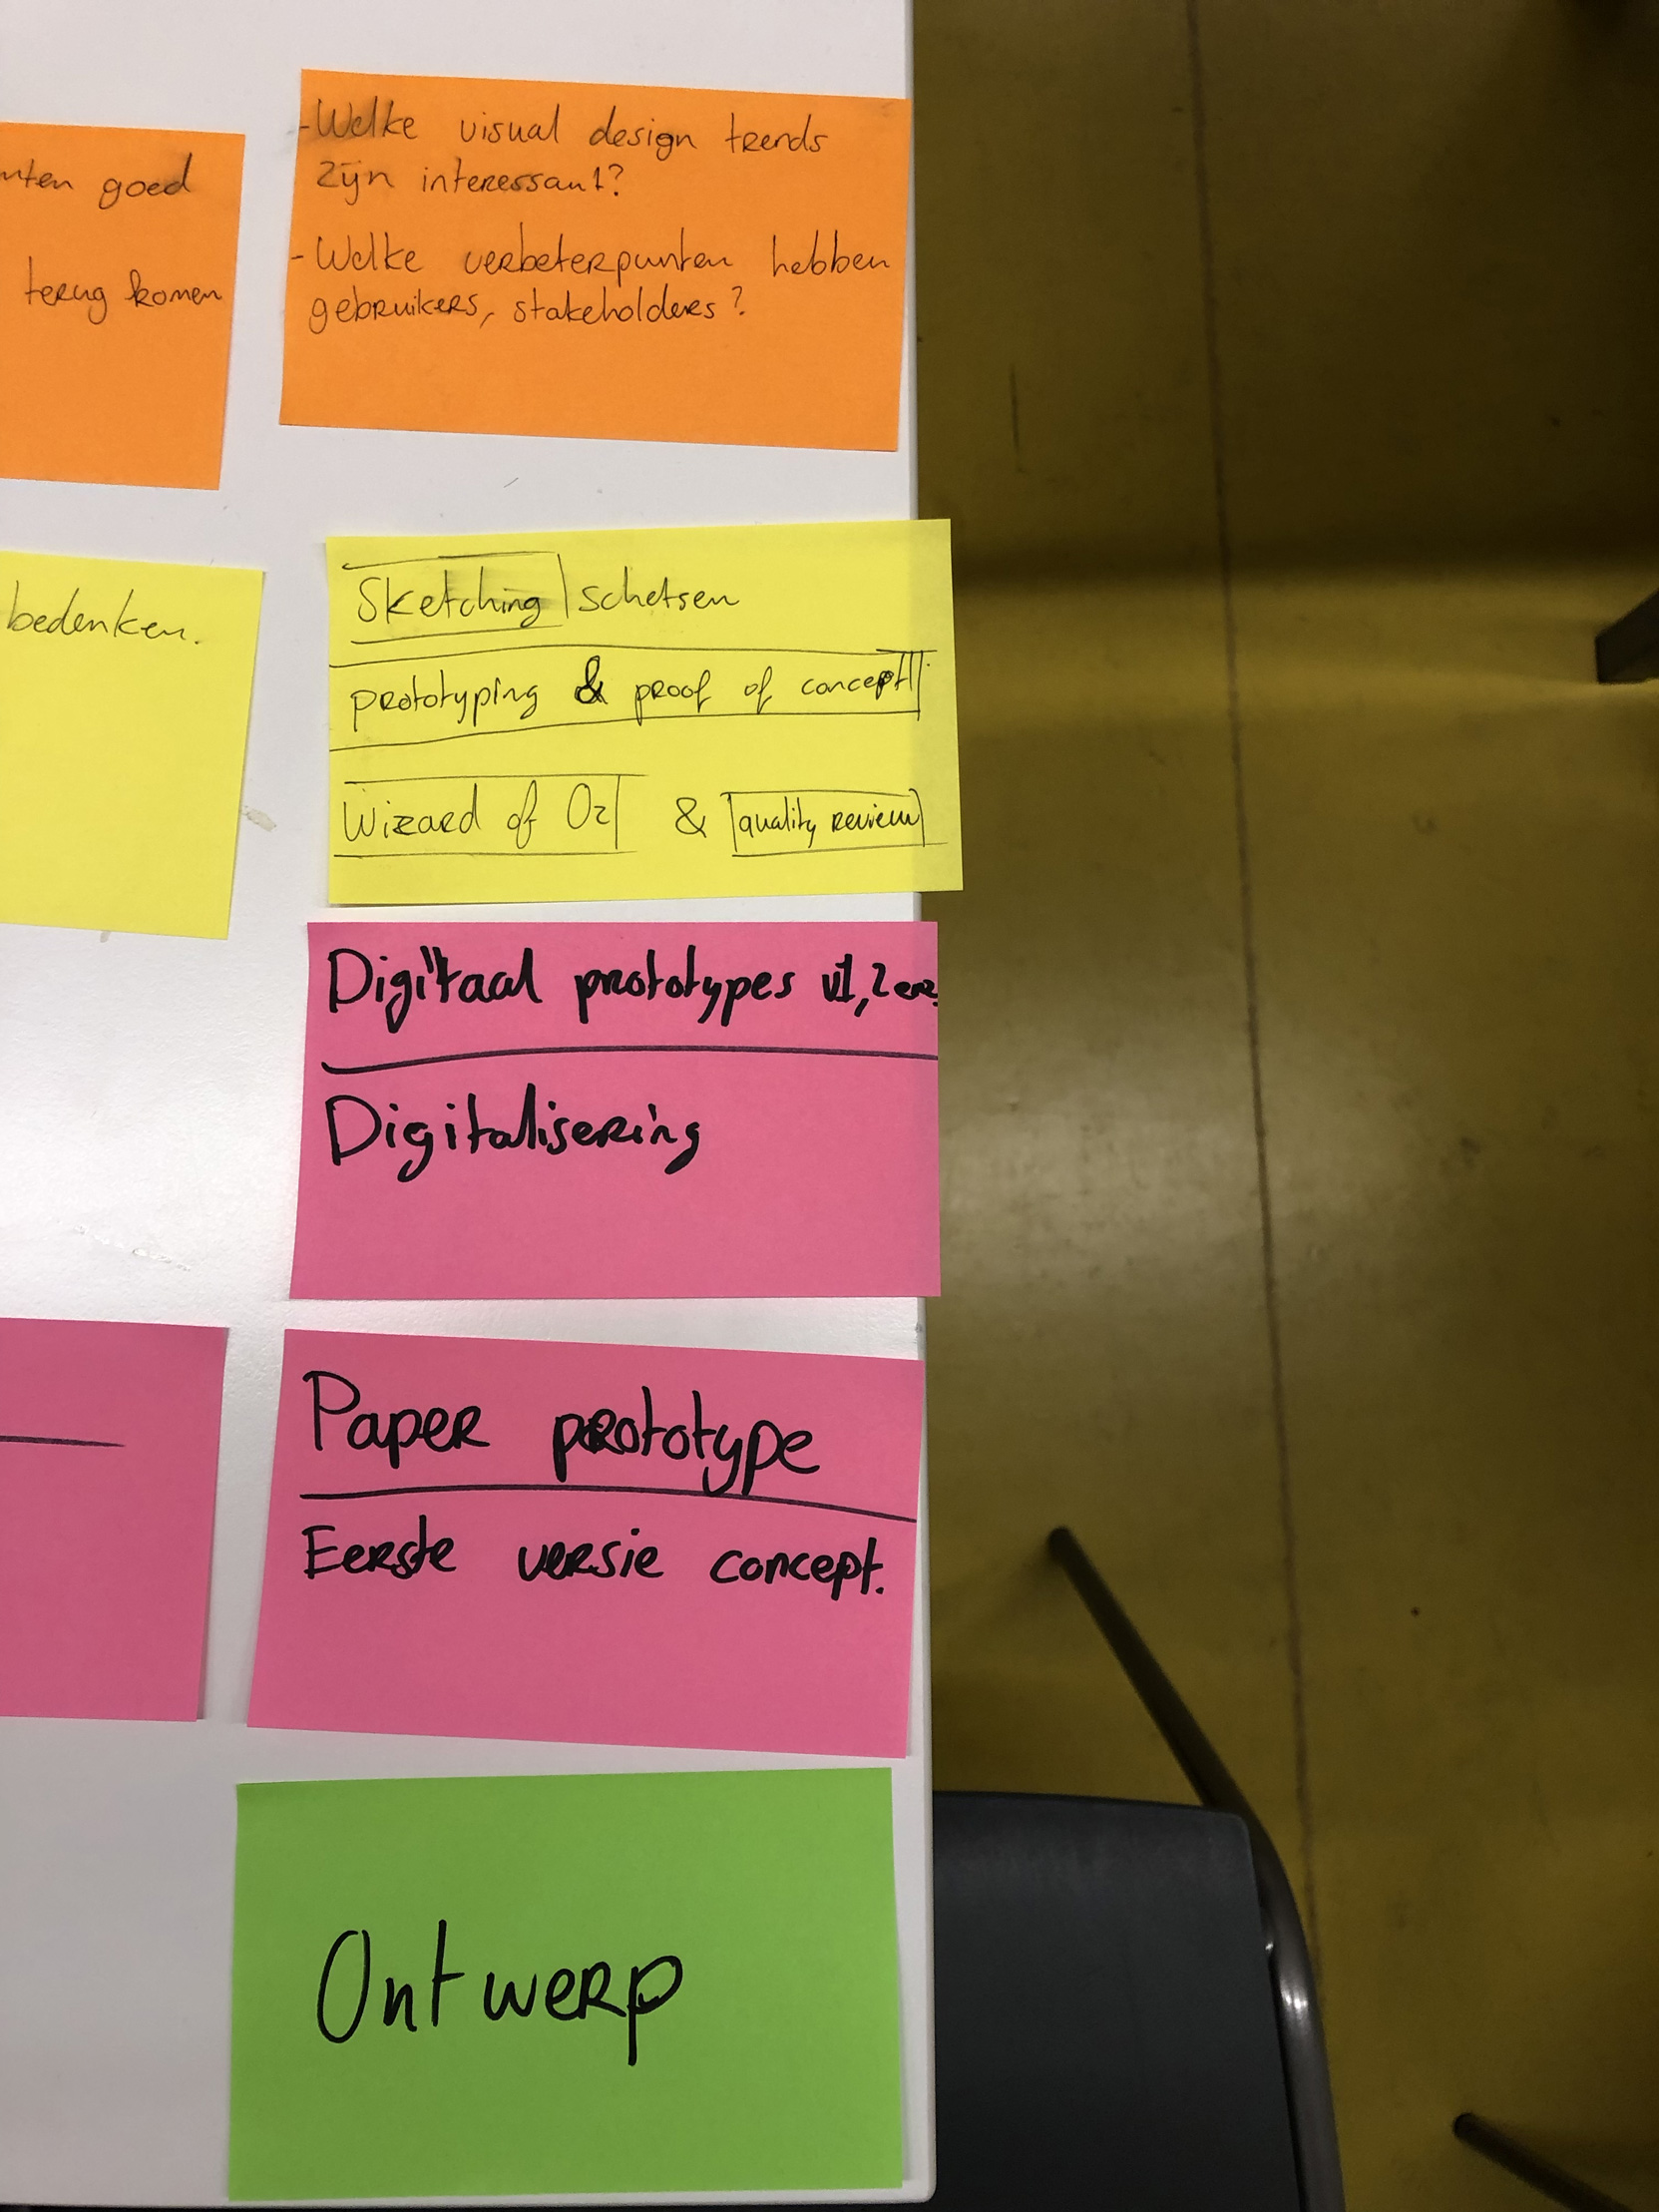 nten goed
terug komen
- Welke visual design trends
zijn interessant?
- Welke verbeterpunten hebben
gebruikers, stakeholders?
bedenken.
Sketching | schetsen
prototyping & proof of concept
Wizard of Oz & quality review
Digitaal prototypes v1,2 enz.
Digitalisering
Paper prototype
Eerste versie concept.
Ontwerp